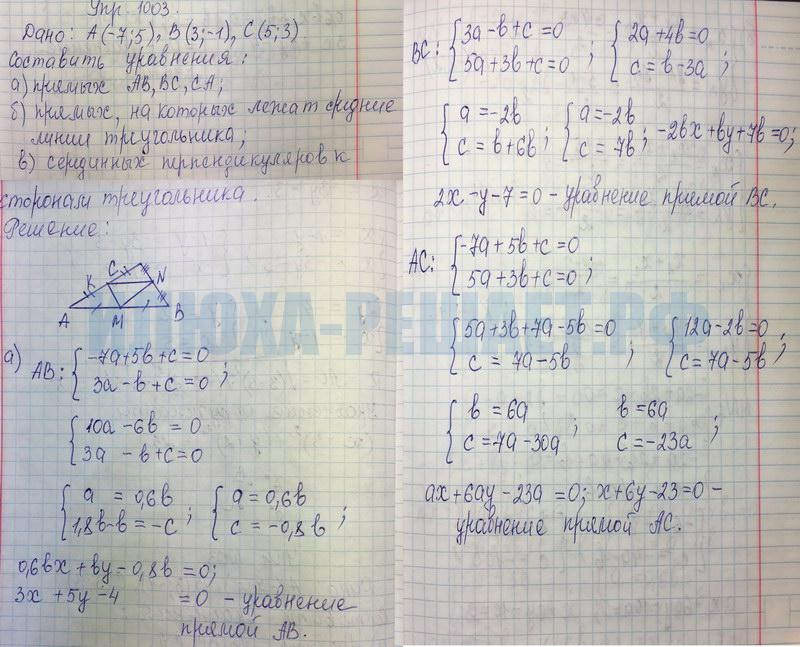 Упр. 1003.
Дано: A(-7;5), B(3;-1), C(5;3)
Составить уравнения:
а) прямых AB, BC, CA;
б) прямых, на которых лежат средние
линии треугольника;
в) серединных перпендикуляров к
сторонам треугольника.
Решение:
C
K
N
A
M
B
а) AB: { -7a+5b+c=0
3a-b+c=0 ;
{ 10a-6b=0
3a-b+c=0
{ a=0,6b
1,8b-b=-c ; { a=0,6b
c=-0,8b ;
0,6bx+by-0,8b=0;
3x+5y-4=0 - уравнение
прямой AB.
BC: { 3a-b+c=0
5a+3b+c=0 ; { 2a+4b=0
c=b-3a ;
{ a=-2b
c=b+6b ; { a=-2b
c=7b ; -2bx+by+7b=0;
2x-y-7=0 - уравнение прямой BC.
AC: { -7a+5b+c=0
5a+3b+c=0 ;
{ 5a+3b+7a-5b=0
c=7a-5b ; { 12a-2b=0
c=7a-5b ;
{ b=6a
c=7a-30a ; b=6a
c=-23a ;
ax+6ay-23a=0; x+6y-23=0 -
уравнение прямой AC.
ИЛЮХА-РЕШАЕТ.РФ